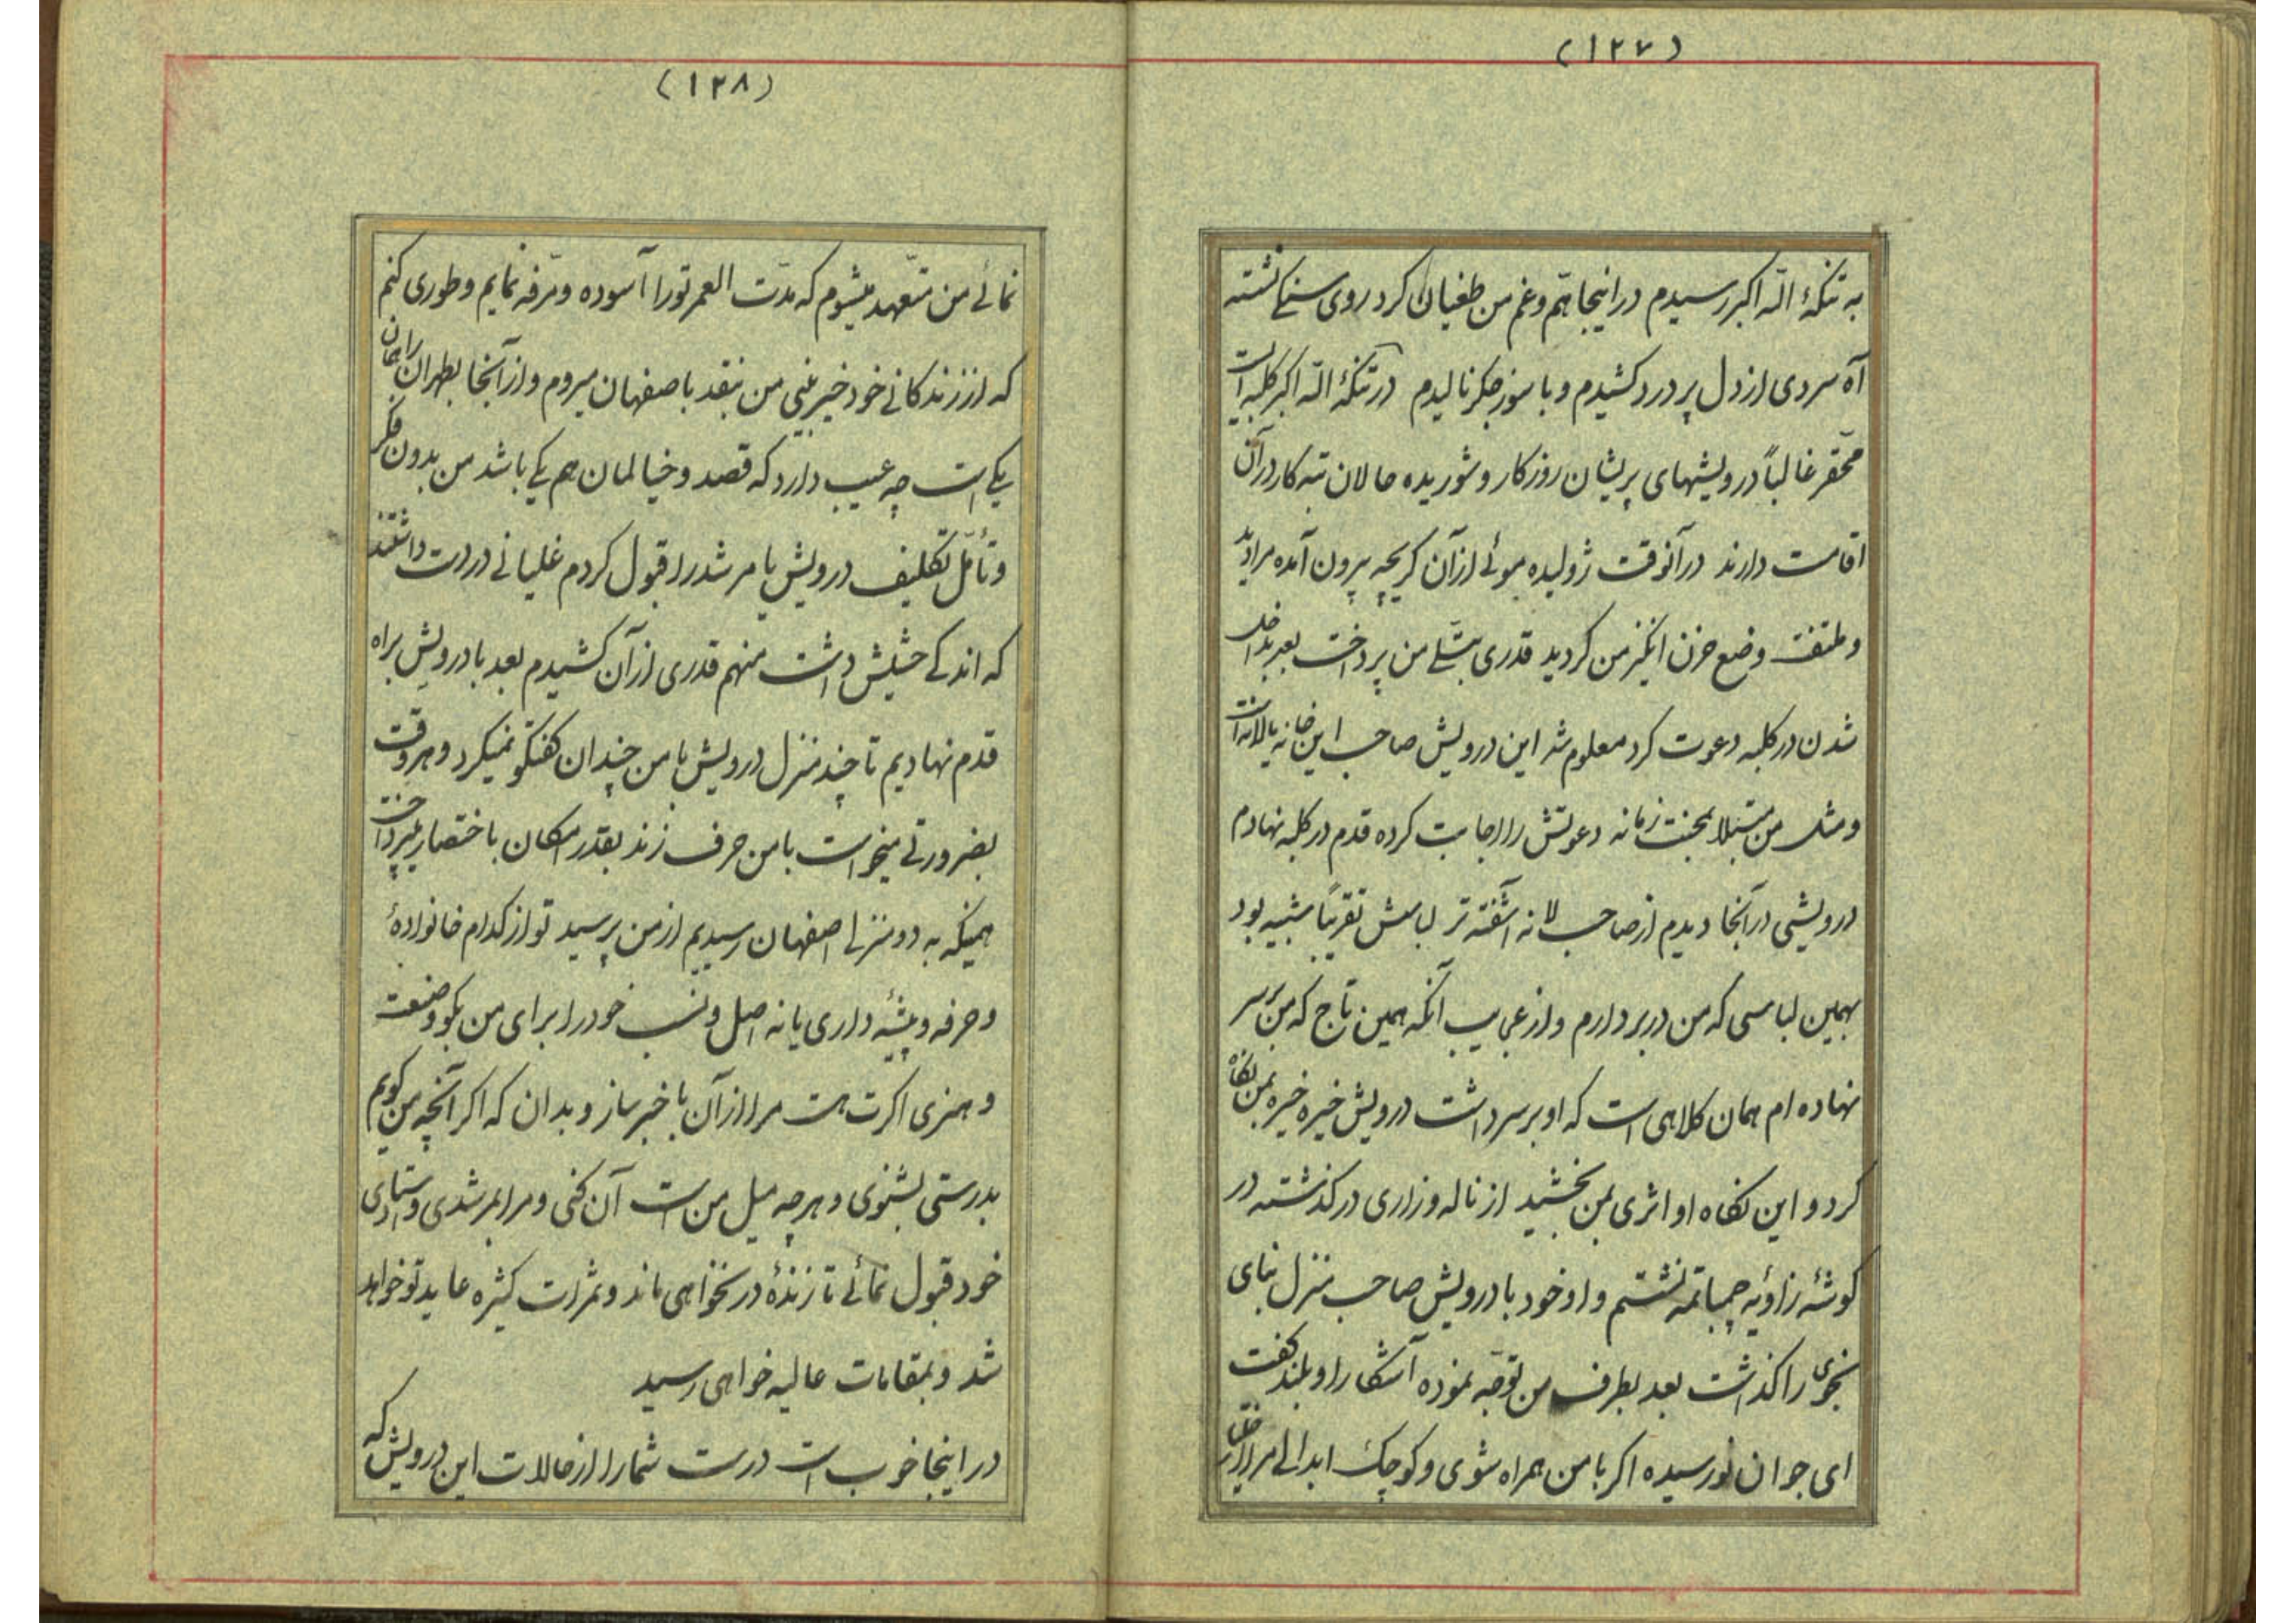 (۱۲۷)
به تنکهٔ اللّه اکبر رسیدم در اینجا هّم و غم من طغیان کرد روی سنکی نشته
آه سردی از دل پر درد کشیدم و با سوز جکر نالیدم در تنکهٔ اللّه اکبر کلبه ایست
محّقر غالباً درویشهای پریشان روزکار و شوریده حالان تبه کار در آن
اقامت دارند در آنوقت ژولیده موئی از آن کریچه بیرون آمده مرا دید
و ملتفت وضع حزن انکیز من کردید قدری بتسّلی من پرداخت بعد بداخل
شدن در کلبه دعوت کرد معلوم شد این درویش صاحب این خانه یا لانه است
و مثل من مبتلا بمحنت زمانه دعوتش را اجابت کرده قدم در کلبه نهادم
درویشی در آنجا دیدم از صاحب لانه آشفته تر لباسش تقریباً شبیه بود
بهمین لباسی که من در بر دارم و از عجایب آنکه همین تاج که من بر سر
نهاده ام همان کلاهی است که او بر سر داشت درویش خیره خیره بمن نکاه
کرد و این نکاه او اثری بمن بخشید از ناله و زاری در کذشته در
کوشهٔ زاویه چمباتمه نشستم و او خود با درویش صاحب منزل بنای
نجوی را کذاشت بعد بطرف من توجّه نموده آشکارا و بلند کفت
ای جوان نورسیده اکر با من همراه شوی و کوچک ابدالی مرا
(۱۲۸)
نمائی من متعّهد میشوم که مدّت العمر تو را آسوده و مرّفه نمایم و طوری کنم
که از زندکانی خود خیر بینی من نقد باصفهان میروم و از آنجا بطهران راهمان
یکی است چه عیب دارد که قصد و خیالمان هم یکی باشد من بدون فکر
و تأمّل تکلیف درویش یا مرشد را قبول کردم غلیانی در دست داشتند
که اندکی حشیش داشت منهم قدری از آن کشیدم بعد با درویش براه
قدم نهادیم تا چند منزل درویش با من چندان کفتکو نمیکرد و هر وقت
بضرورتی میخواست با من حرف زند بقدر امکان باختصار میپرداخت
همینکه به دو منزلی اصفهان رسیدیم از من پرسید تو از کدام خانوادهٔ
و حرفه و پیشهٔ داری یا نه اصل و نسب خود را برای من بکو و صنعت
و هنری اکرت هست مرا از آن با خبر ساز و بدان که اکر آنچه من کویم
بدرستی بشنوی و هر چه میل من است آن کنی و مرا بمرشدی و استادی
خود قبول نمائی تا زندهٔ در نخواهی ماند و ثمرات کثیره عاید تو خواهد
شد و بمقامات عالیه خواهی رسید
در اینجا خوب است درست شما را از حالات این درویش که